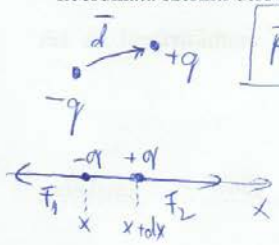 d̅
+q
-q
-q +q
F₁ F₂
x x+dx x